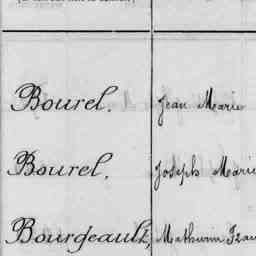 Bourel. Jean Marie
Bourel. Joseph Marie
Bourgeault, Mathurin